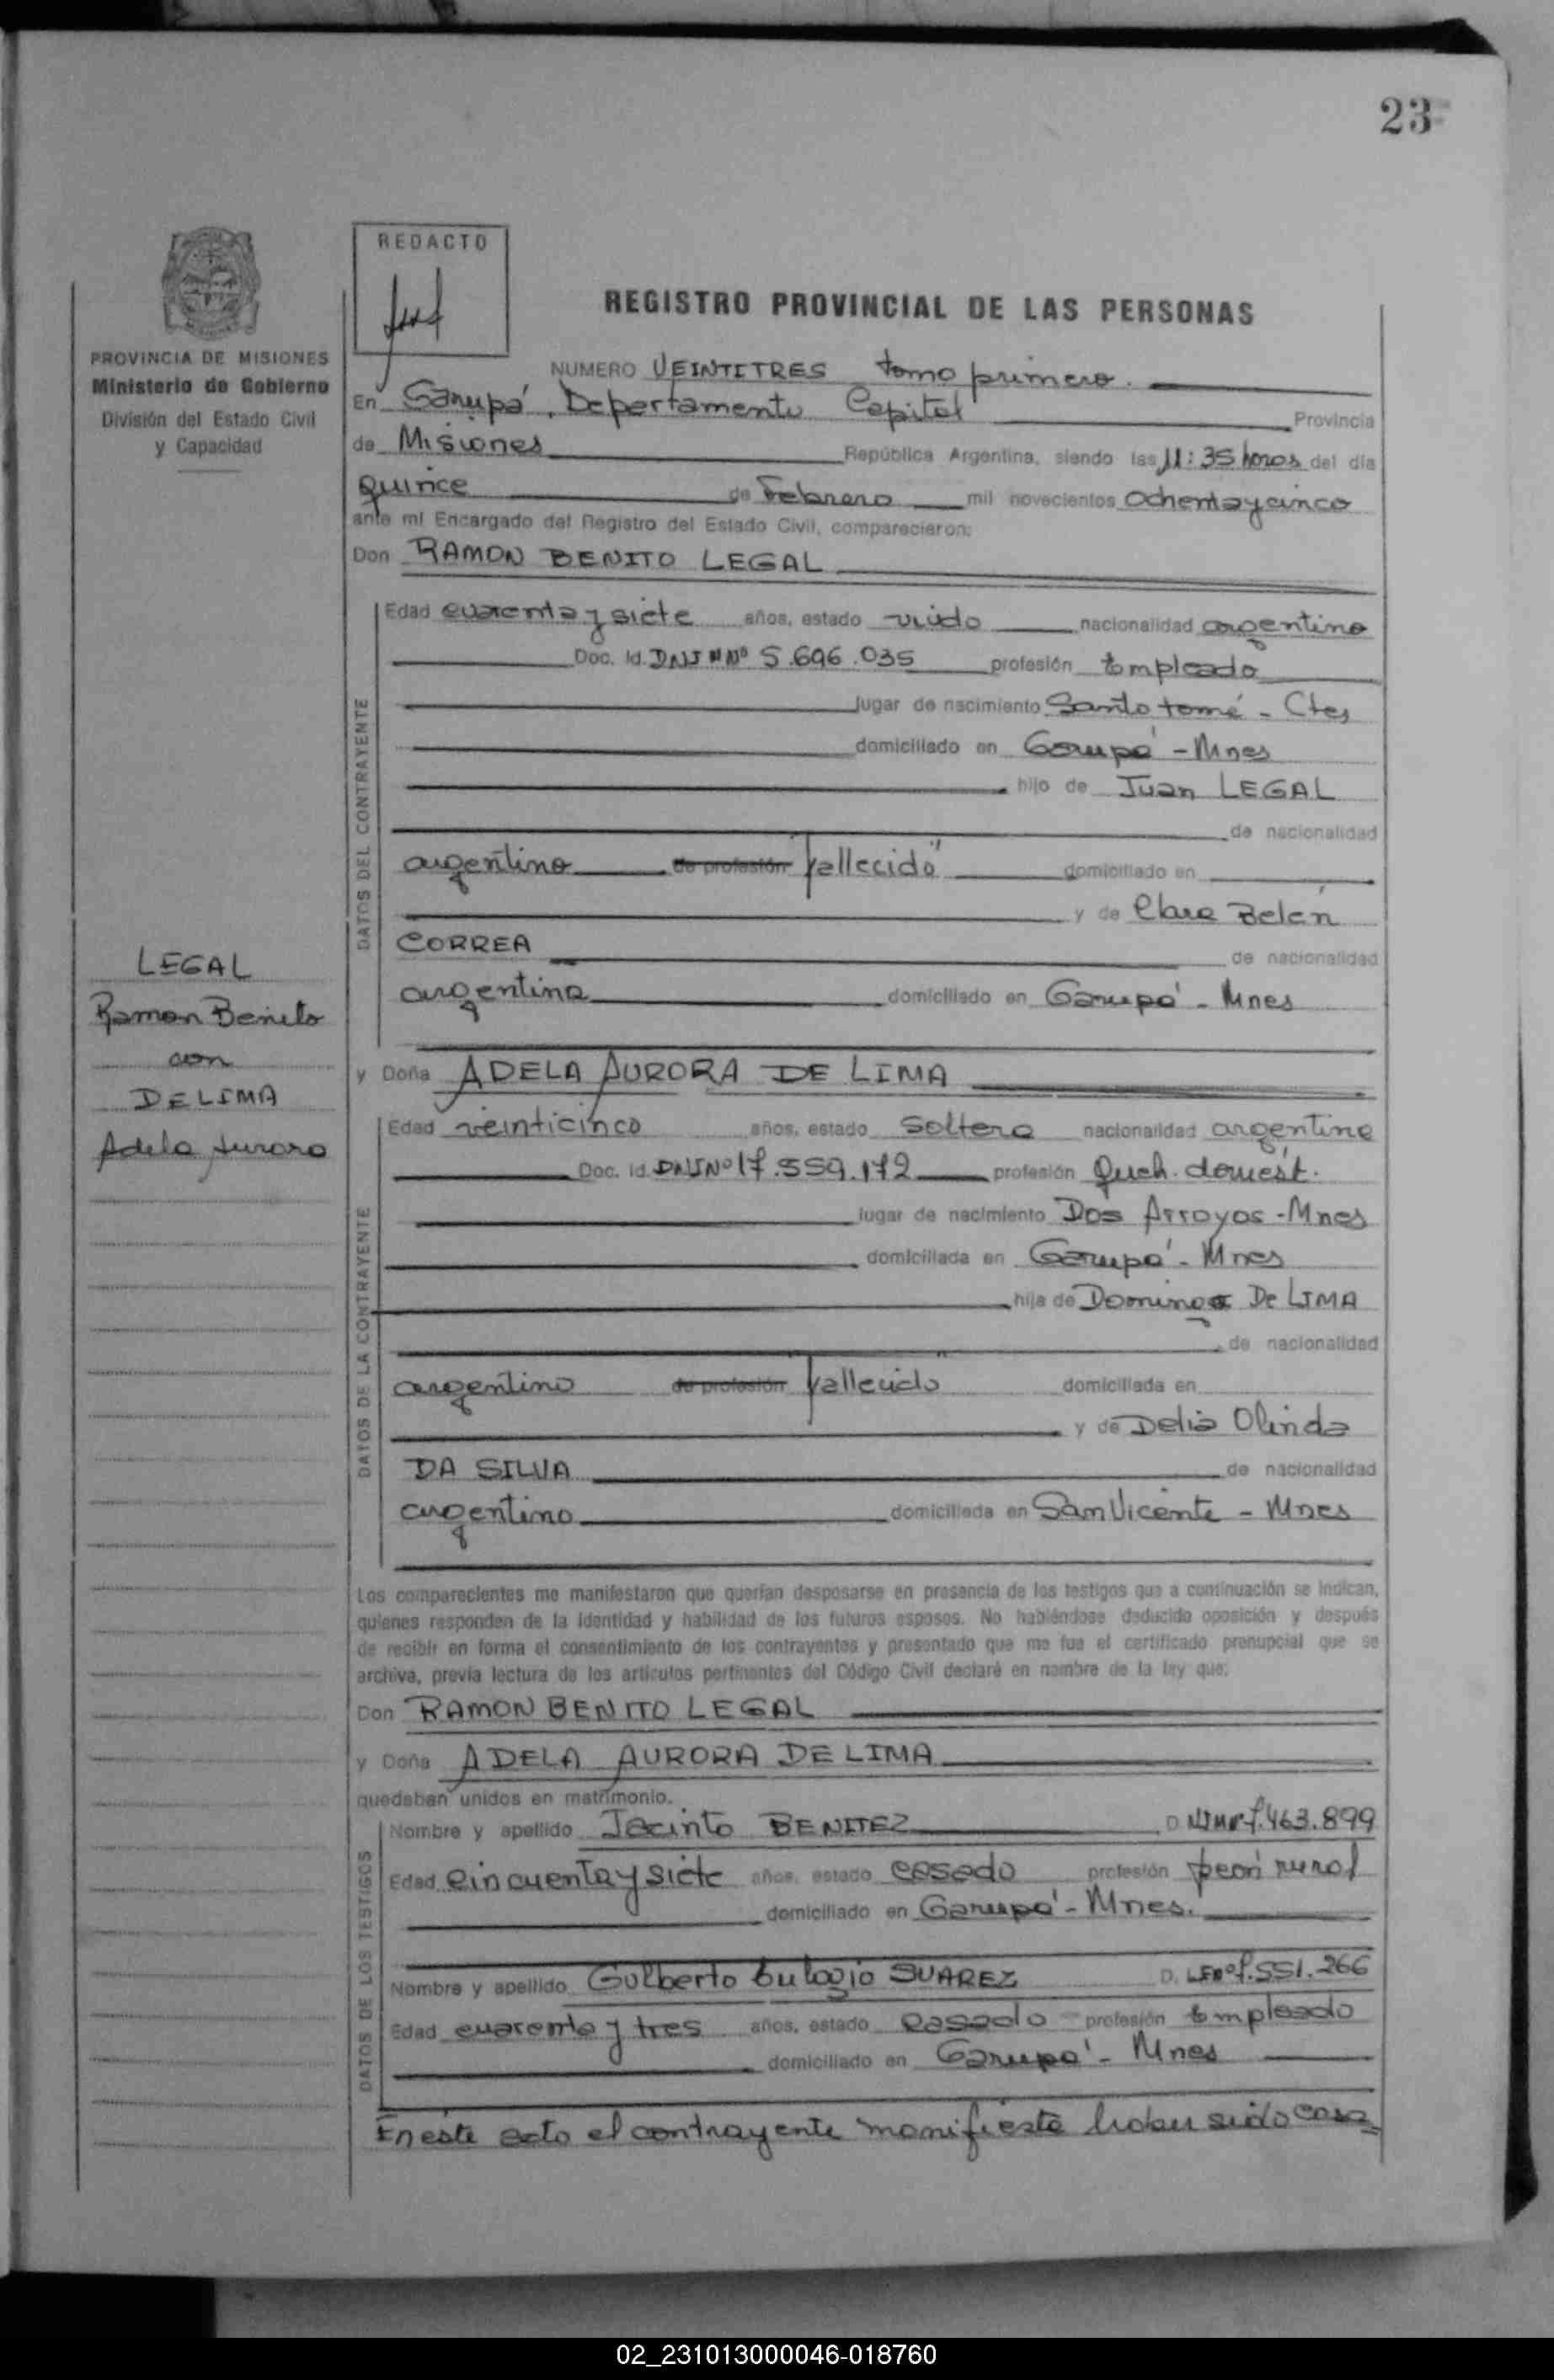 23
REDACTO
REGISTRO PROVINCIAL DE LAS PERSONAS
PROVINCIA DE MISIONES
Ministerio de Gobierno
División del Estado Civil
y Capacidad
NUMERO VEINTITRES tomo primero.
En Garupá, Departamento Capital Provincia
de Misiones República Argentina, siendo las 11:35 horas del día
Quince de Febrero mil novecientos ochenta y cinco
ante mí Encargado del Registro del Estado Civil, comparecieron:
Don RAMON BENITO LEGAL
DATOS DEL CONTRAYENTE
Edad cuarenta y siete años, estado viudo nacionalidad argentino
Doc. Id. DNI Nº 5.696.035 profesión Empleado
lugar de nacimiento Santo tomé - Ctes
domiciliado en Garupá - Mnes
hijo de Juan LEGAL
de nacionalidad
argentino de profesión "fallecido" domiciliado en
y de Clara Belén
CORREA de nacionalidad
argentina domiciliado en Garupá - Mnes
LEGAL
Ramon Benito
con
DE LIMA
Adela Aurora
y Doña ADELA AURORA DE LIMA
DATOS DE LA CONTRAYENTE
Edad veinticinco años, estado Soltera nacionalidad argentina
Doc. Id. DNI Nº 17.559.172 profesión Queh. domést.
lugar de nacimiento Dos Arroyos - Mnes
domiciliada en Garupá - Mnes
hija de Domingo De LIMA
de nacionalidad
argentino de profesión "fallecido" domiciliada en
y de Delia Olinda
DA SILVA de nacionalidad
argentina domiciliada en San Vicente - Mnes
Los comparecientes me manifestaron que querían desposarse en presencia de los testigos que a continuación se indican,
quienes responden de la identidad y habilidad de los futuros esposos. No habiéndose deducido oposición y después
de recibir en forma el consentimiento de los contrayentes y presentado que me fue el certificado prenupcial que se
archiva, previa lectura de los artículos pertinentes del Código Civil declaré en nombre de la ley que:
Don RAMON BENITO LEGAL
y Doña ADELA AURORA DE LIMA
quedaban unidos en matrimonio.
DATOS DE LOS TESTIGOS
Nombre y apellido Jacinto BENITEZ D. NI Nº 7.463.899
Edad cincuenta y siete años, estado casado profesión peón rural
domiciliado en Garupá - Mnes.
Nombre y apellido Gulberto Eulogio SUAREZ D. LE Nº 7.551.266
Edad cuarenta y tres años, estado casado profesión Empleado
domiciliado en Garupá - Mnes
En este acto el contrayente manifiesta haber sido casa=
02_231013000046-018760